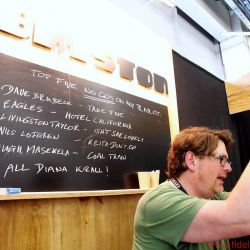 ELLISTON
TOP FIVE NO GOS ON ANY PLAYLIST
DAVE BRUBECK - TAKE FIVE
EAGLES - HOTEL CALIFORNIA
LIVINGSTON TAYLOR - ISN'T SHE LOVELY
NILS LOFGREN - KEITH DON'T GO
HUGH MASEKELA - COAL TRAIN
ALL DIANA KRALL!
fidel